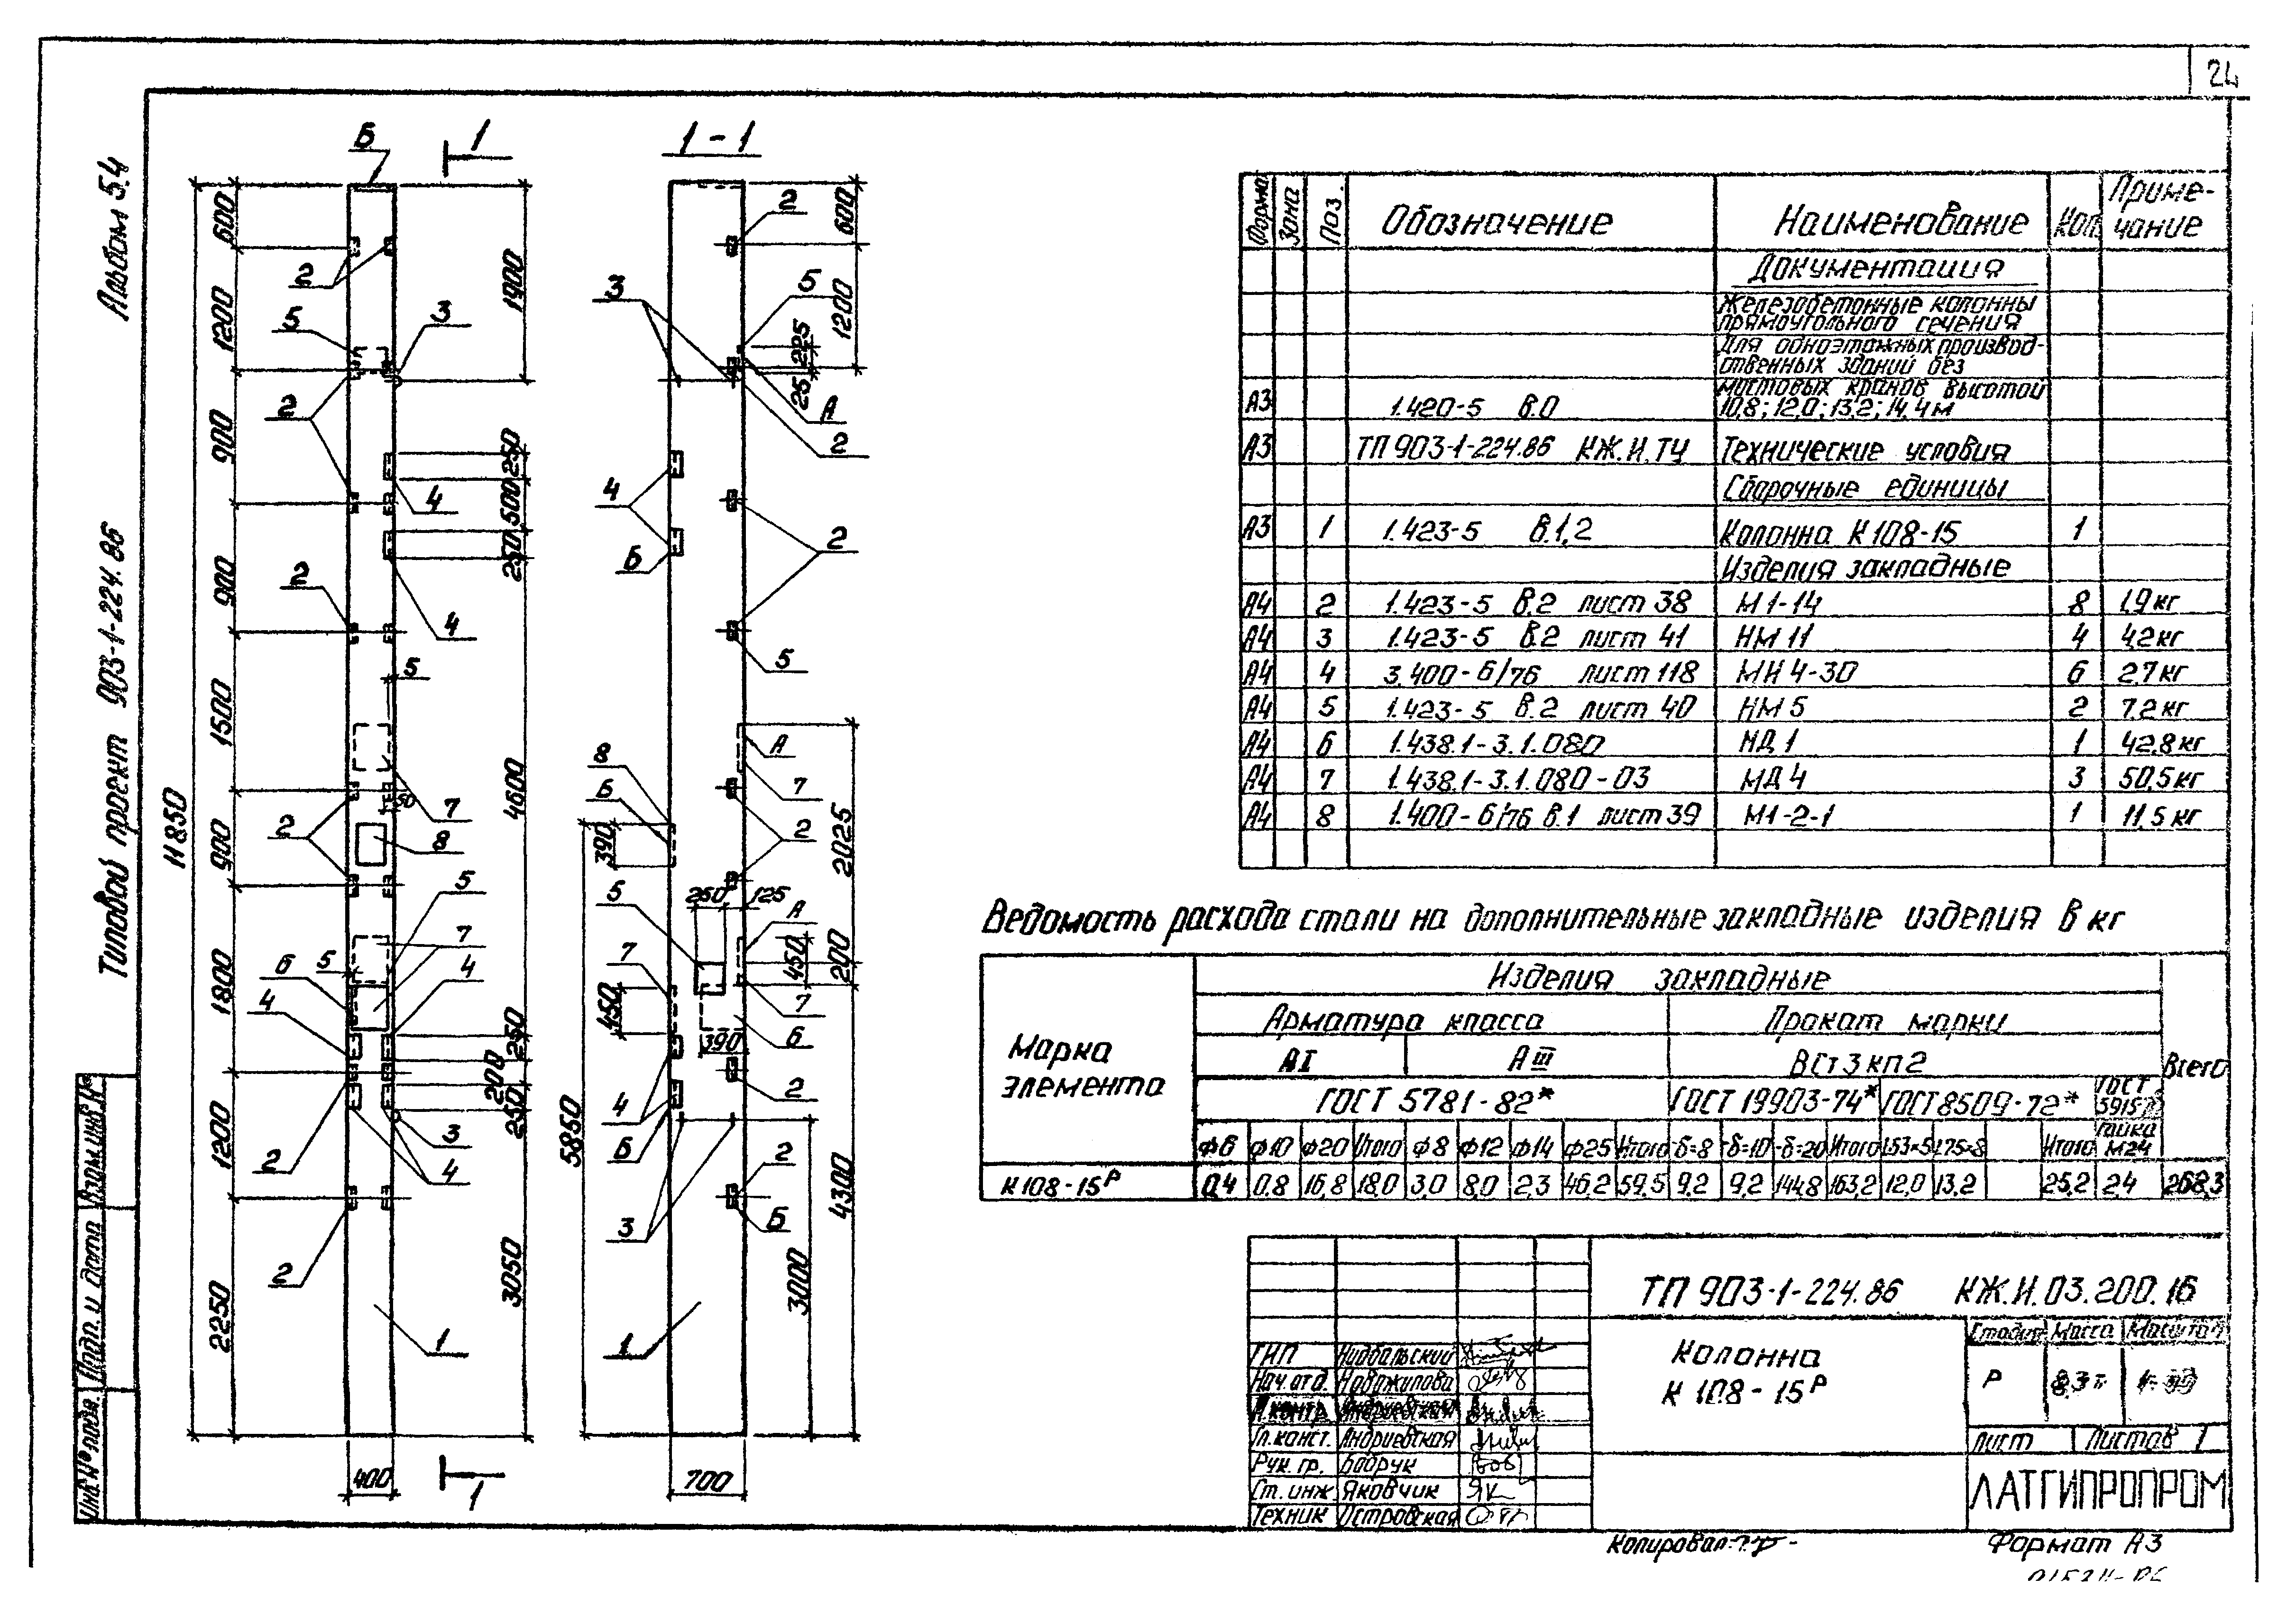 24
Альбом 5.4
Типовой проект 903-1-224.86
Инв.№ подл.
Подп. и дата
Взам.инв.№
Б
1
1-1
11850
600
1200
900
900
1500
900
1800
1200
2250
1900
250
500
250
4600
50
250
200
250
3050
400
1
2
5
3
2
4
2
4
5
7
2
8
5
7
5
6
4
4
2
3
4
2
1
2
600
5
1200
3
225
25
А
2
4
Б
2
5
А
8
Б
7
2
390
2025
5
250
125
А
7
450
200
450
7
390
6
4
2
Б
5850
2
3
Б
4300
3000
1
700
Форма
Зона
Поз.
Обозначение
Наименование
Кол.
Приме-
чание
Документация
Железобетонные колонны
прямоугольного сечения
Для одноэтажных производ-
ственных зданий без
мостовых кранов высотой
А3 1.420-5 В.0 10,8; 12,0; 13,2; 14,4м
А3 ТП 903-1-224.86 КЖ.И.ТУ Технические условия
Сборочные единицы
А3 1 1.423-5 В.1,2 Колонна К 108-15 1
Изделия закладные
А4 2 1.423-5 В.2 лист 38 М1-14 8 1,9 кг
А4 3 1.423-5 В.2 лист 41 НМ 11 4 4,2 кг
А4 4 3.400-6/76 лист 118 МН 4-30 6 2,7 кг
А4 5 1.423-5 В.2 лист 40 НМ 5 2 7,2 кг
А4 6 1.438.1-3.1.080 МД 1 1 42,8 кг
А4 7 1.438.1-3.1.080-03 МД 4 3 50,5 кг
А4 8 1.400-6/76 В.1 лист 39 М1-2-1 1 11,5 кг
Ведомость расхода стали на дополнительные закладные изделия в кг
Марка
элемента
Изделия закладные
Арматура класса Прокат марки
АI АIII ВСт3кп2 Всего
ГОСТ 5781-82* ГОСТ 19903-74* ГОСТ 8509-72* ГОСТ
гайка
М24
Ф6 Ф10 Ф20 Итого Ф8 Ф12 Ф14 Ф25 Итого -δ=8 -δ=10 -δ=20 Итого L53×5 L75×8 Итого
К 108-15Р 0,4 0,8 16,8 18,0 3,0 8,0 2,3 46,2 59,5 9,2 9,2 144,8 163,2 12,0 13,2 25,2 2,4 268,3
ТП 903-1-224.86 КЖ.И.03.200.16
Колонна
К 108-15Р
Стадия Масса Масштаб
Р 8,3 т
Лист Листов 1
ЛАТГИПРОПРОМ
ГИП Нидбальский
Нач.отд. Новожилова
Н.контр. Андриевская
Гл.конст. Андриевская
Рук. гр. Бабрук
Ст. инж. Яковчик
Техник Островская
Копировал:
Формат А3